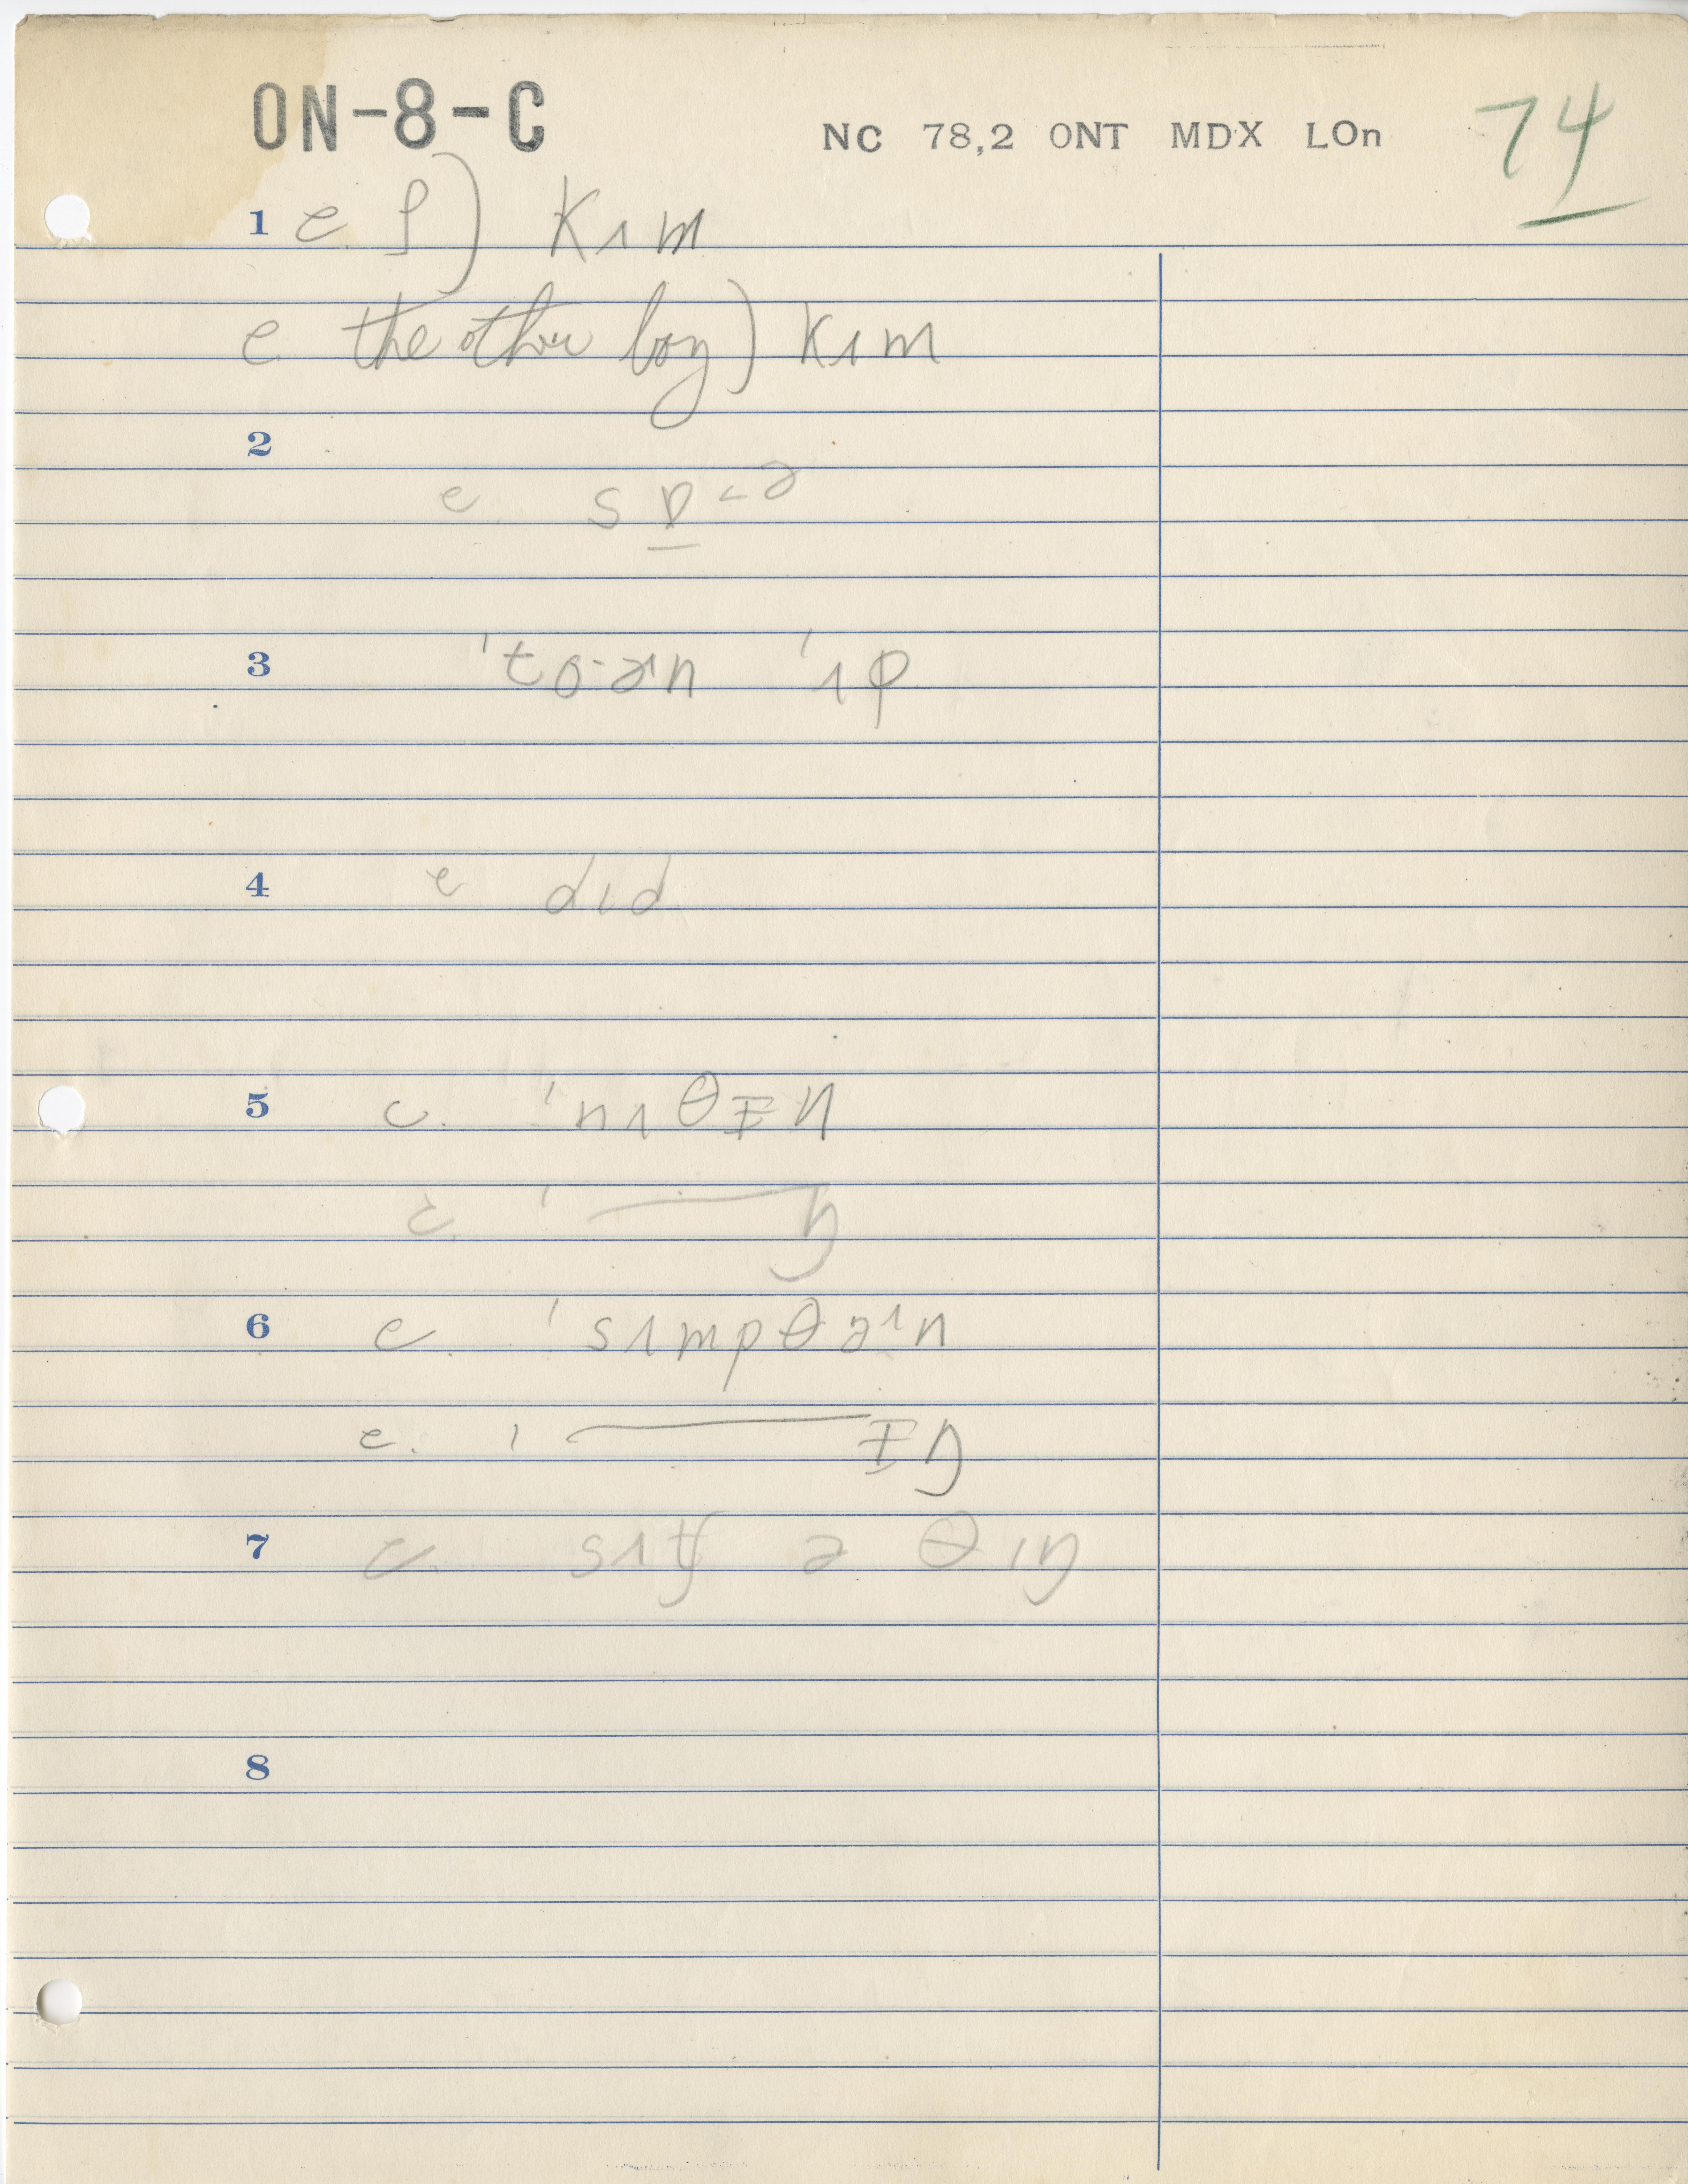 ON-8-C NC 78,2 ONT MDX LOn 74
1 c. ʃ) kɪm
c. the other boy) kɪm
2
c. sɒ˂ə
3 'to·ᵊn 'ɪφ
4 c dɪd
5 c. 'nɪθɪ̵n
c. '——ŋ
6 c. 'sɪmpθəᶦn
c. '——ɪ̵ŋ
7 c. sɪtʃ ə θɪŋ
8